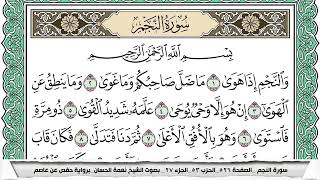 سُورَةُ النَّجْمِ
بِسْمِ اللَّهِ الرَّحْمَٰنِ الرَّحِيمِ
وَالنَّجْمِ إِذَا هَوَىٰ ١ مَا ضَلَّ صَاحِبُكُمْ وَمَا غَوَىٰ ٢ وَمَا يَنطِقُ عَنِ
الْهَوَىٰ ٣ إِنْ هُوَ إِلَّا وَحْيٌ يُوحَىٰ ٤ عَلَّمَهُ شَدِيدُ الْقُوَىٰ ٥ ذُو مِرَّةٍ
فَاسْتَوَىٰ ٦ وَهُوَ بِالْأُفُقِ الْأَعْلَىٰ ٧ ثُمَّ دَنَا فَتَدَلَّىٰ ٨ فَكَانَ قَابَ
سورة النجم الصفحة ٥٢٦ الحزب ٥٣ الجزء ٢٧ بصوت الشيخ نعمة الحسان برواية حفص عن عاصم